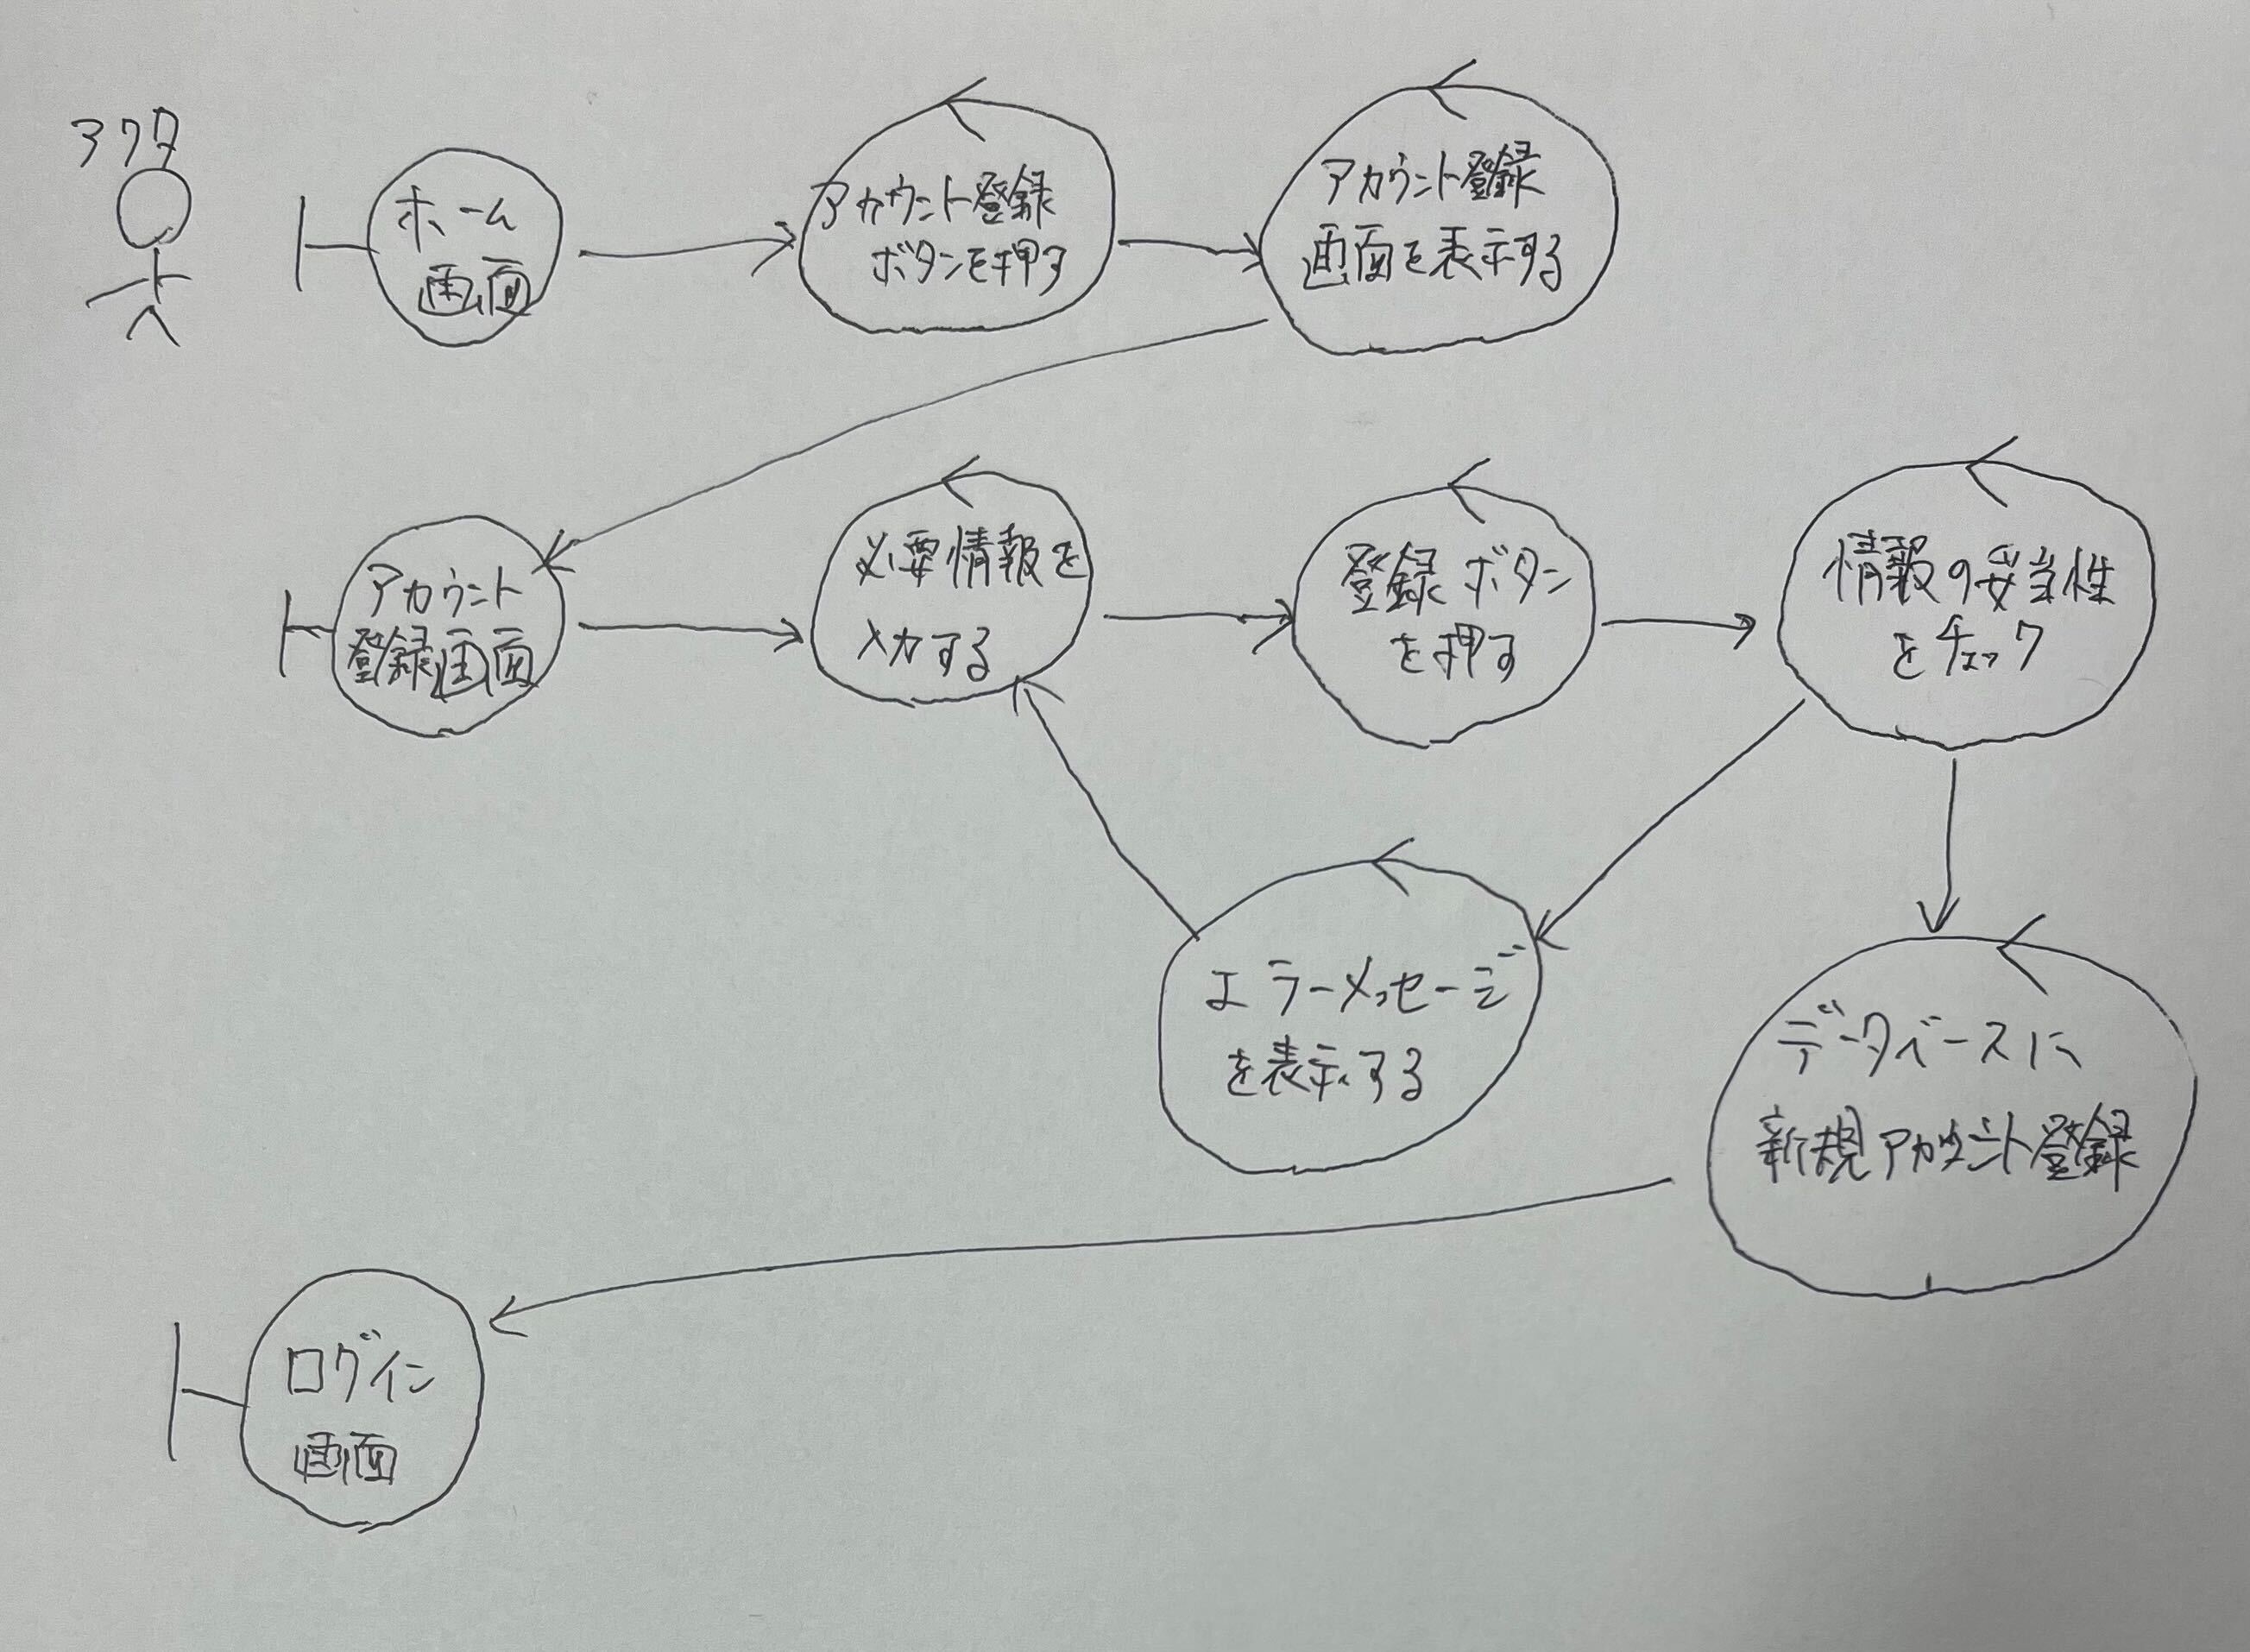 アクタ
ホーム
画面
アカウント登録
ボタンを押す
アカウント登録
画面を表示する
アカウント
登録画面
必要情報を
入力する
登録ボタン
を押す
情報の妥当性
をチェック
エラーメッセージ
を表示する
データベースに
新規アカウント登録
ログイン
画面